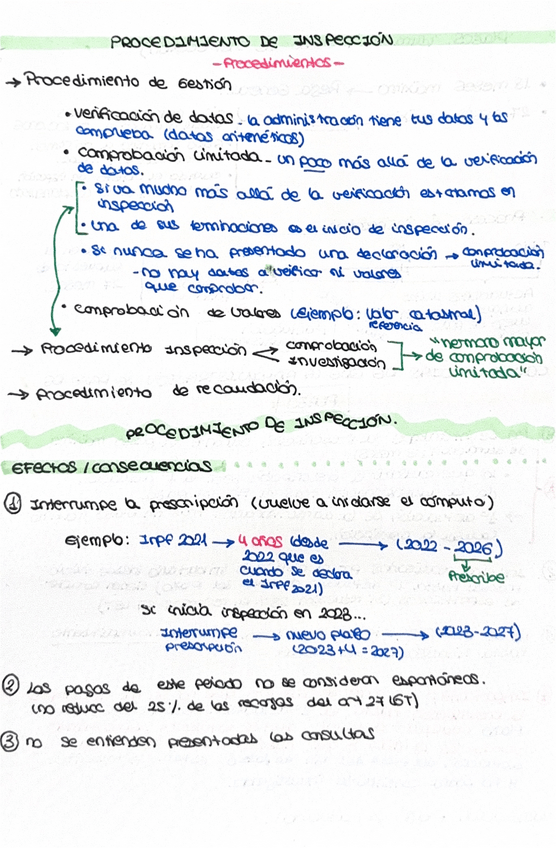 PROCEDIMIENTO DE INSPECCIÓN
- Procedimientos -
→ Procedimiento de Gestión
• verificación de datos - la administración tiene tus datos y los
comprueba (datos aritméticos)
• comprobación limitada - un poco más allá de la verificación
de datos.
• Si va mucho más allá de la verificación estaríamos en
inspección
• una de sus terminaciones es el inicio de inspección.
• Si nunca se ha presentado una declaración → comprobación
limitada.
- no hay datos a verificar ni valores
que comprobar.
• comprobación de valores (ejemplo: valor catastral)
referencia
→ Procedimiento Inspección < comprobación
investigación
"hermano mayor
de comprobación
limitada"
→ Procedimiento de recaudación.
PROCEDIMIENTO DE INSPECCIÓN.
EFECTOS / consecuencias
① Interrumpe la prescripción (vuelve a iniciarse el cómputo)
Ejemplo: Irpf 2021 → 4 años (desde → (2022 - 2026)
2022 que es
cuando se declara
el Irpf 2021)
Prescribe
Si inicia inspección en 2023...
Interrumpe → nuevo plazo → (2023-2027)
prescripción (2023+4 = 2027)
② Los pagos de este periodo no se consideran espontáneos.
(no reducc del 25% de los recargos del art 27 LGT)
③ no se entienden presentadas las consultas